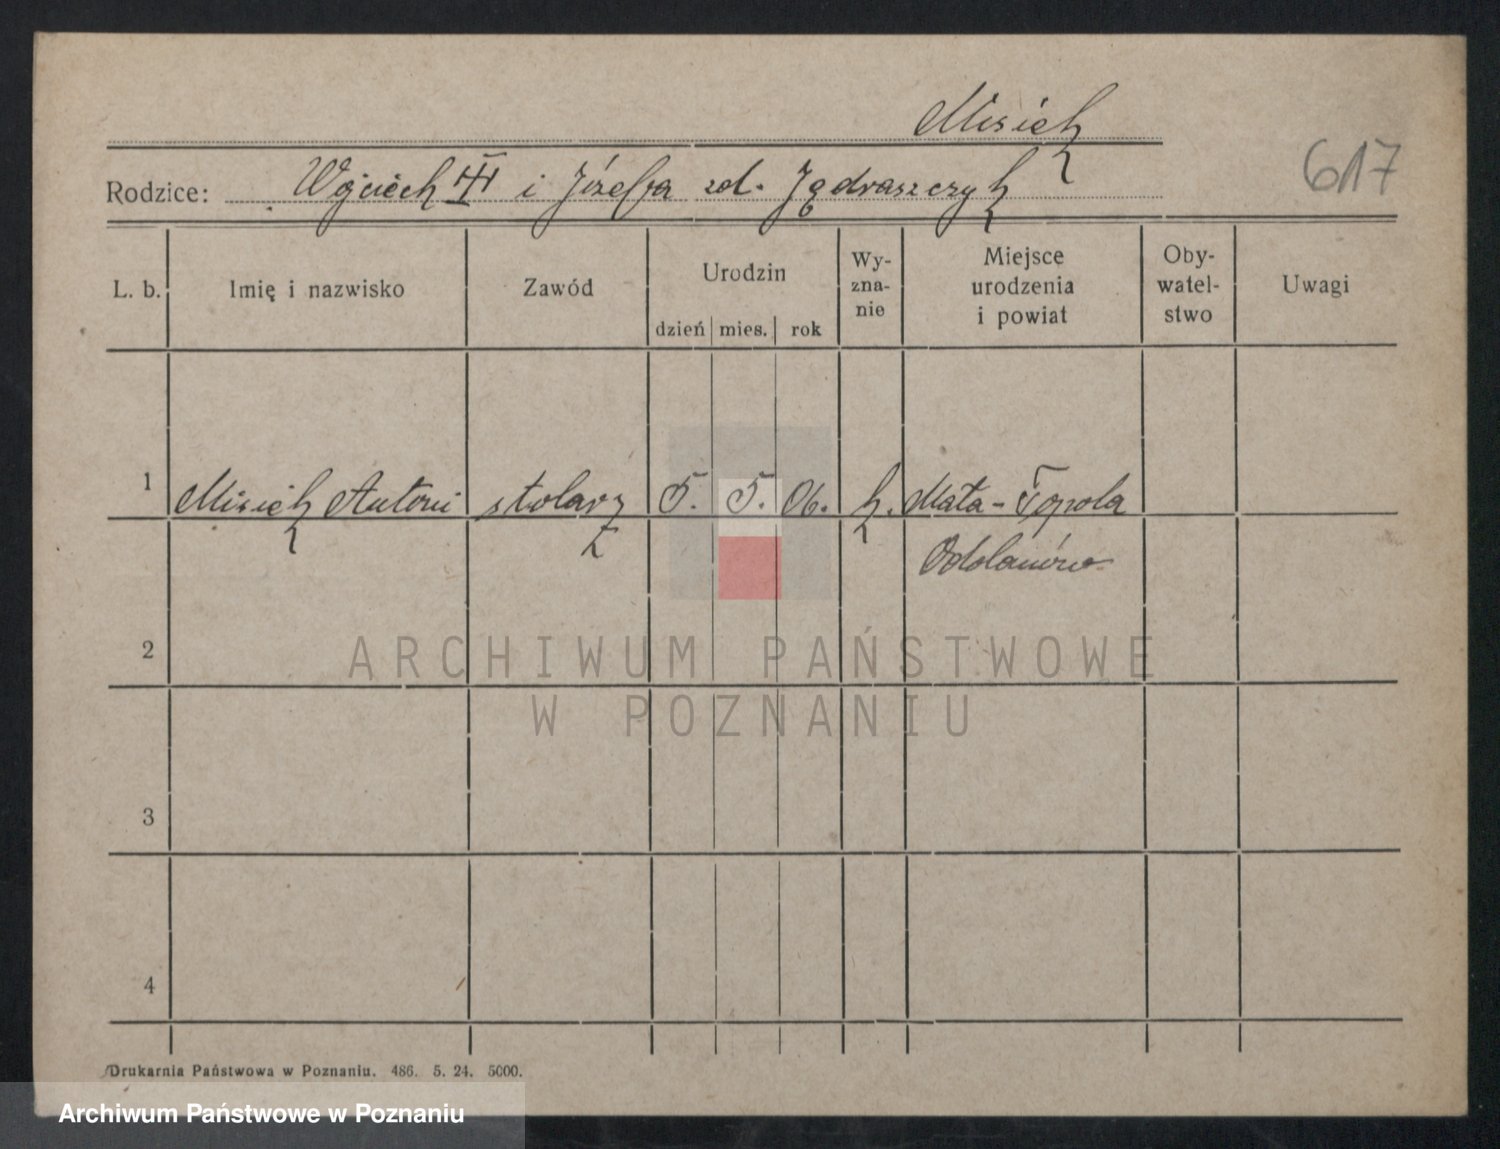 Misiek
617
Rodzice: Wojciech III i Józefa zd. Jądraszczyk
L. b. Imię i nazwisko Zawód Urodzin dzień mies. rok Wy-zna-nie Miejsce urodzenia i powiat Oby-watel-stwo Uwagi
1 Misiek Antoni stolarz 5. 5. 06. k. Mała-Topola
Odolanów
2
ARCHIWUM PAŃSTWOWE
W POZNANIU
3
4
Drukarnia Państwowa w Poznaniu. 486. 5. 24. 5000.
Archiwum Państwowe w Poznaniu